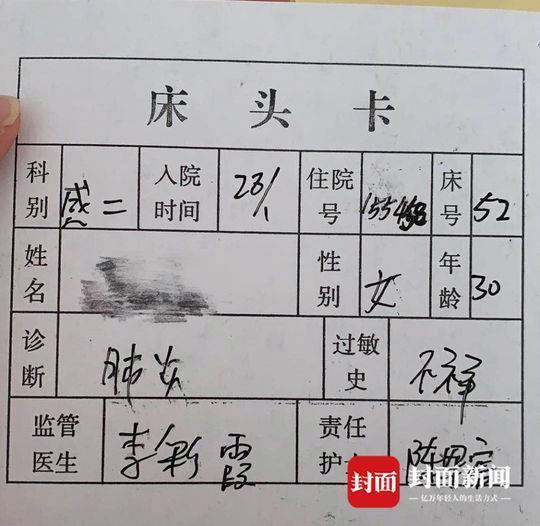 床头卡
科别 感二 入院时间 23/1 住院号 床号 52
姓名 性别 女 年龄 30
诊断 肺炎 过敏史 不祥
监管医生 李彩霞 责任护
封面 封面新闻
亿万年轻人的生活方式